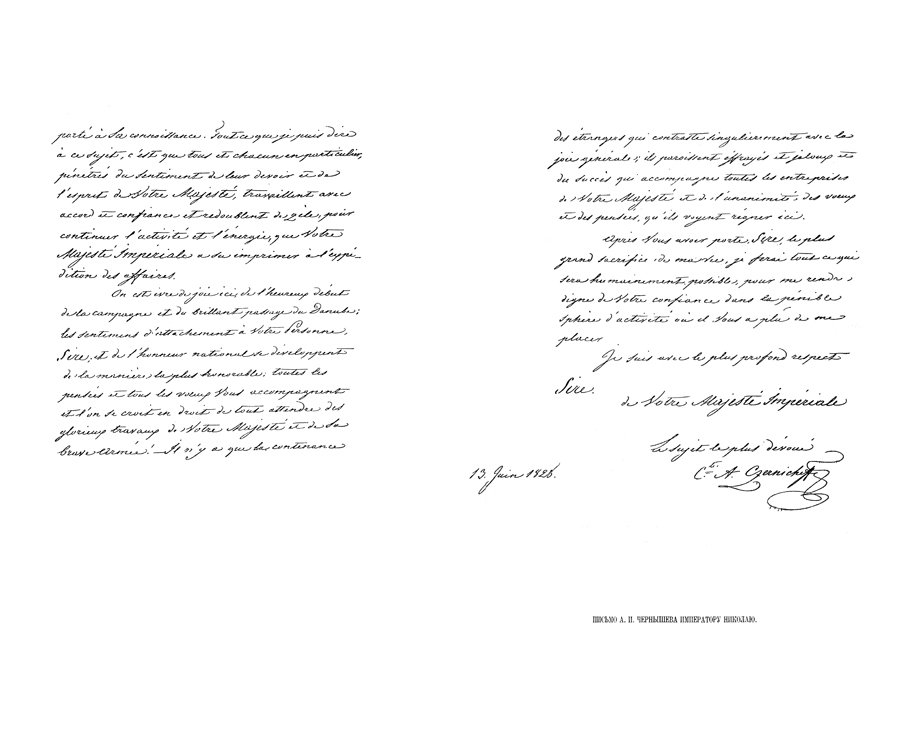 porté à Sa connoissance. Tout ce que je puis dire
à ce sujet, c'est que tous et chacun en particulier,
pénétrés du sentiment de leur devoir et de
l'esprit de Votre Majesté, travaillent avec
accord et confiance et redoublent de zèle, pour
continuer l'activité et l'énergie, que Votre
Majesté Impériale a su imprimer à l'expé-
dition des affaires.
On est ivre de joie ici, de l'heureux début
de la campagne et du brillant passage du Danube;
les sentimens d'attachement à Votre Personne,
Sire, et de l'honneur national se développent
de la manière la plus honorable; toutes les
pensées et tous les voeux Vous accompagnent
et l'on se croit en droit de tout attendre des
glorieux travaux de Votre Majesté et de Sa
brave Armée! — Il n'y a que la contenance
des étrangers qui contraste singulierement avec la
joie générale; ils paroissent effrayés et jaloux et
du succès qui accompagne toutes les entreprises
de Votre Majesté et de l'unanimité, des voeux
et des pensées, qu'ils voyent régner ici.
Après Vous avoir porté, Sire, le plus
grand sacrifice de ma vie, je ferai tout ce qui
sera humainement possible, pour me rendre
digne de Votre confiance dans la pénible
sphère d'activité où il Vous a plû de me
placer
Je suis avec le plus profond respect
Sire.
de Votre Majesté Impériale
Le sujet le plus dévoué
Cte A. Czernicheff
13. Juin 1828.
ПИСЬМО А. И. ЧЕРНЫШЕВА ИМПЕРАТОРУ НИКОЛАЮ.